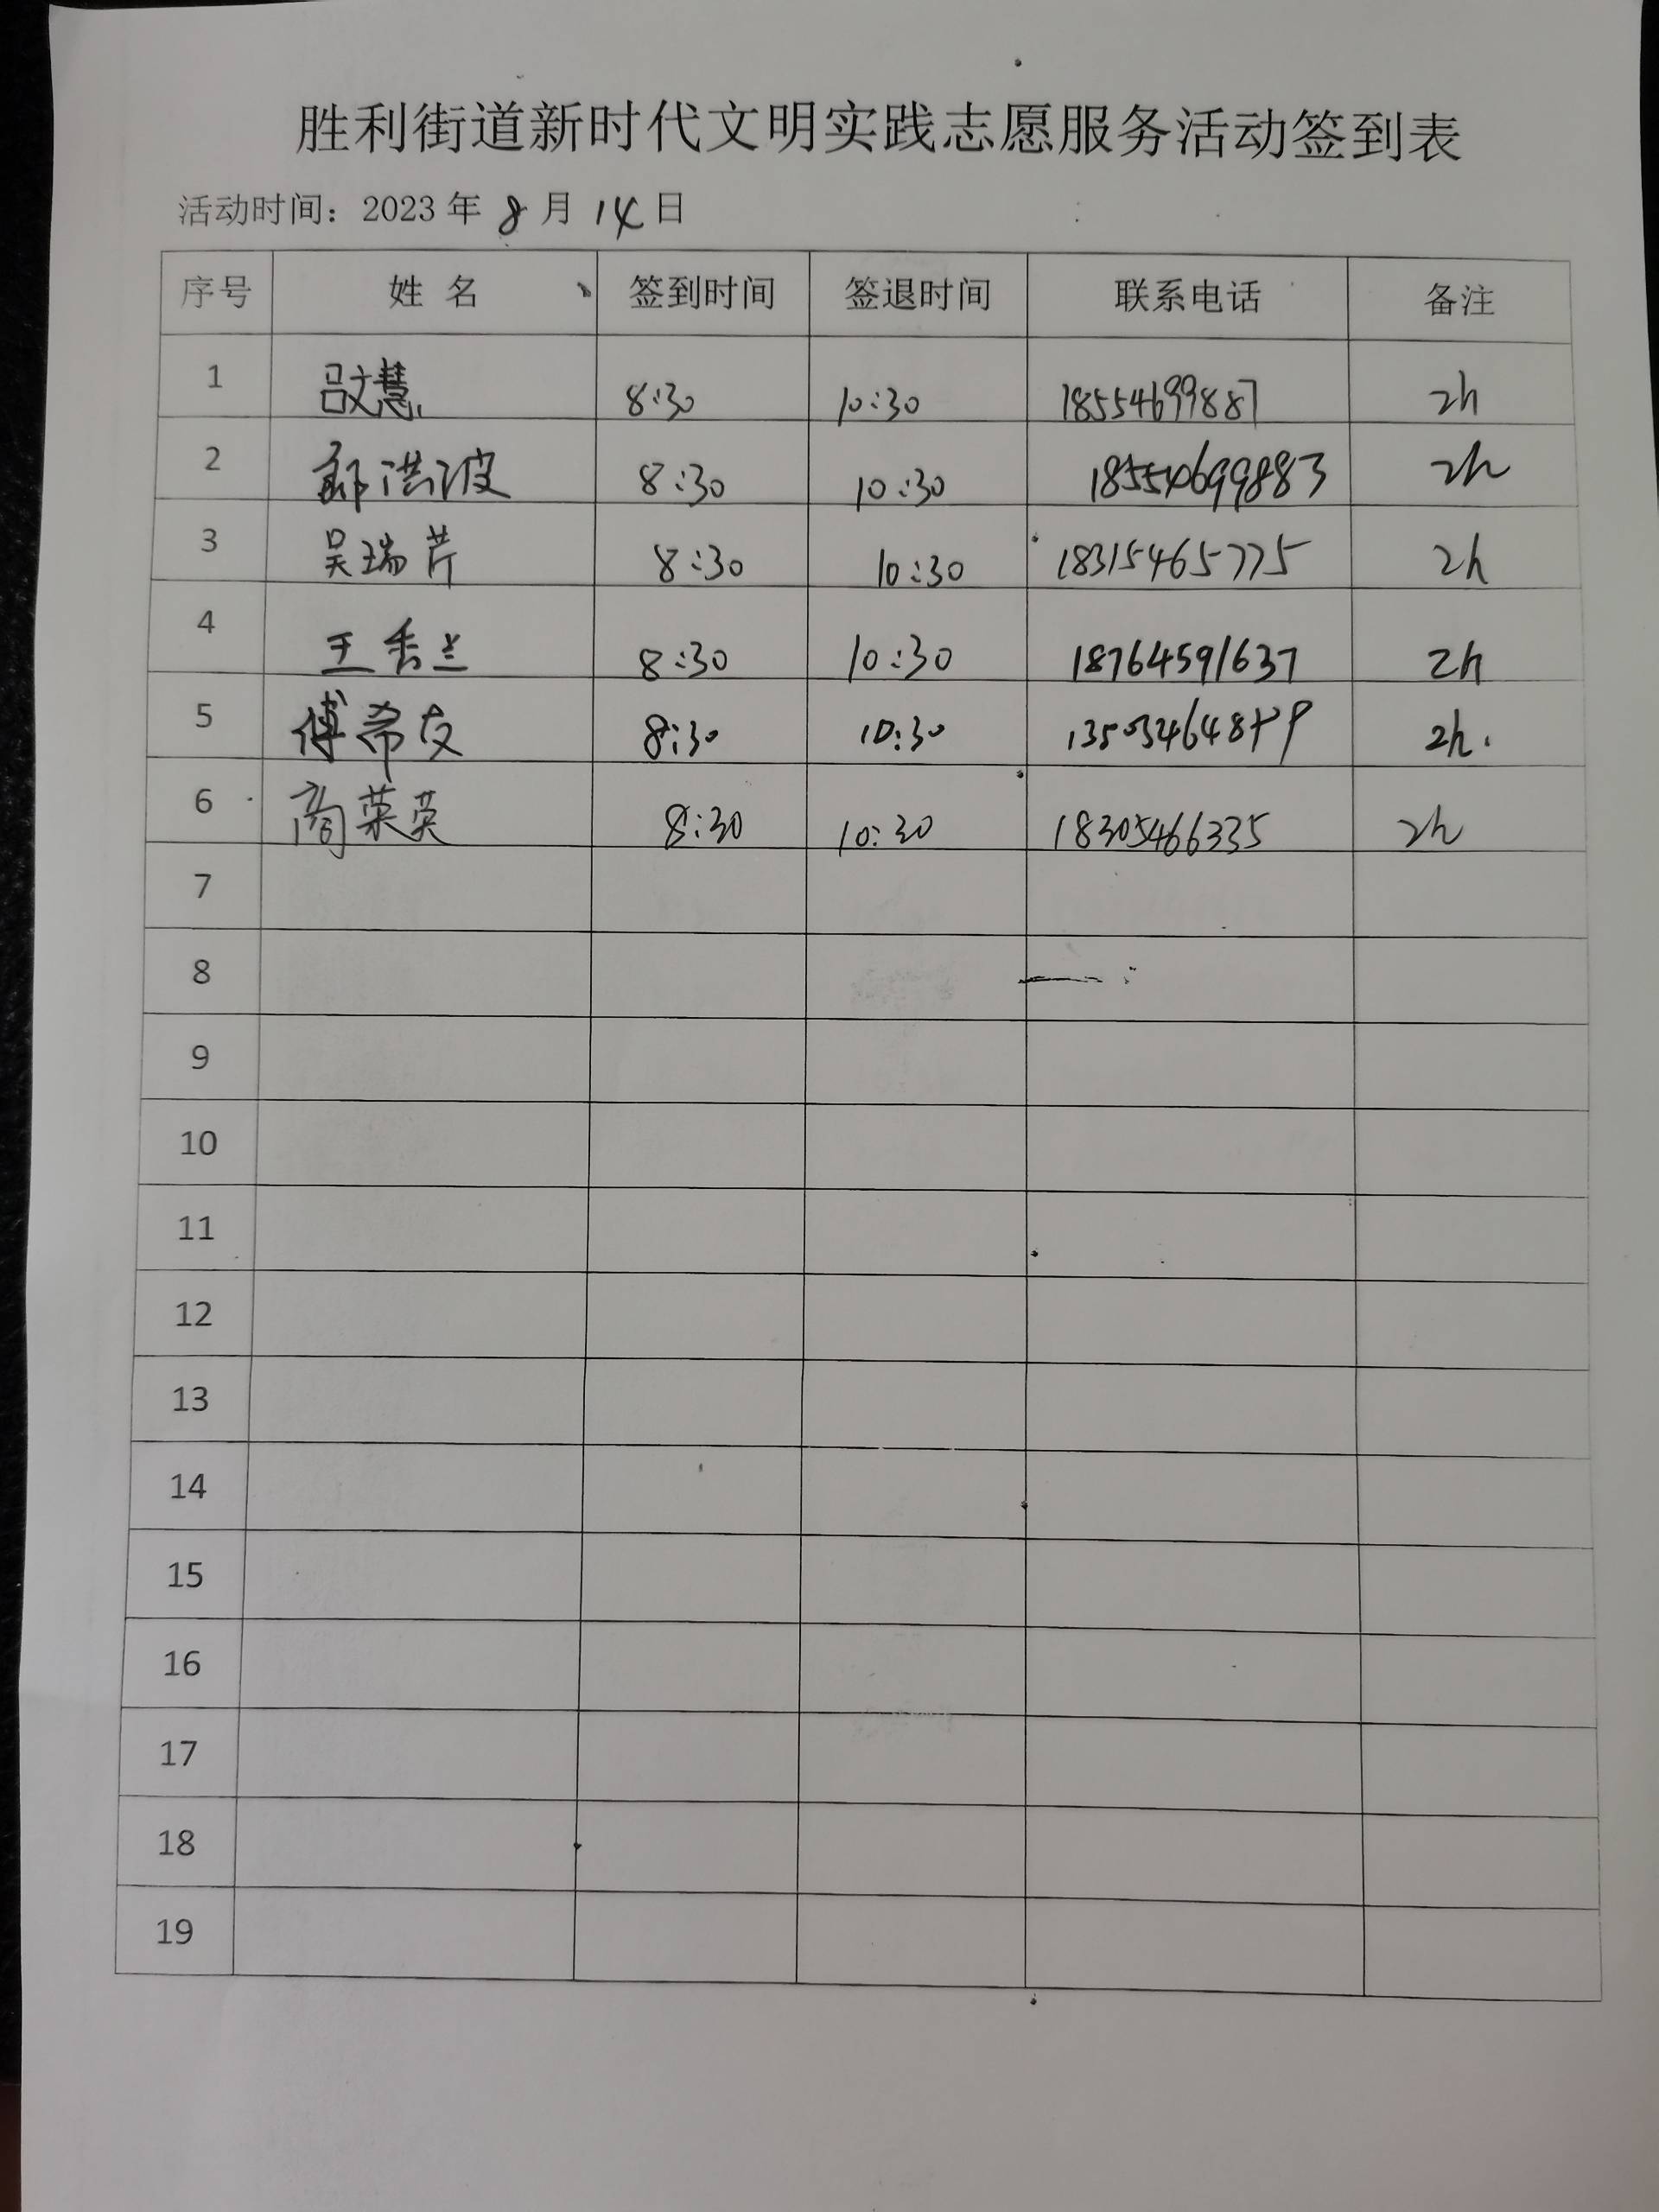 胜利街道新时代文明实践志愿服务活动签到表
活动时间：2023 年 8 月 14 日
序号 姓 名 签到时间 签退时间 联系电话 备注
1 吕文慧 8:30 10:30 18554699887 2h
2 洪波 8:30 10:30 18554699883 2h
3 吴瑞芹 8:30 10:30 18315465775 2h
4 王秀兰 8:30 10:30 18764591637 2h
5 傅希友 8:30 10:30 2h.
6 商荣英 8:30 10:30 18305466335 2h
7
8
9
10
11
12
13
14
15
16
17
18
19